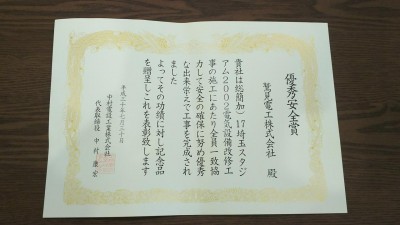 優秀安全賞
鷲見電工株式会社 殿
貴社は総簡加）17埼玉スタジ
アム2002電気設備改修工
事の施工にあたり全員一致協
力して安全の確保に努め優秀
な出来栄えで工事を完成され
ました
よってその功績に対し記念品
を贈呈しこれを表彰致します
平成三十年七月三十日
中村電設工業株式会社
代表取締役 中村 康宏